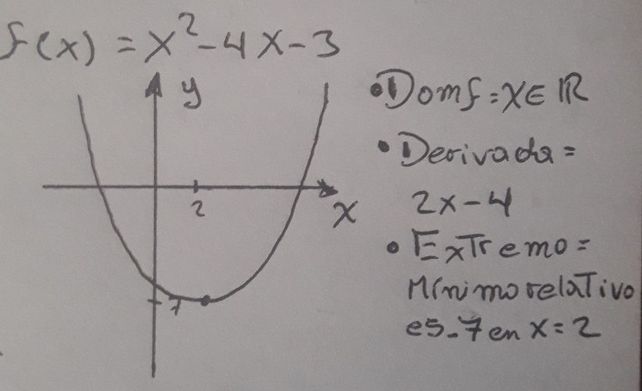 f(x) = x²-4x-3
y
2
x
-7
• Domf = x∈ℝ
• Derivada =
2x-4
• Extremo =
Mínimo relativo
es -7 en x=2